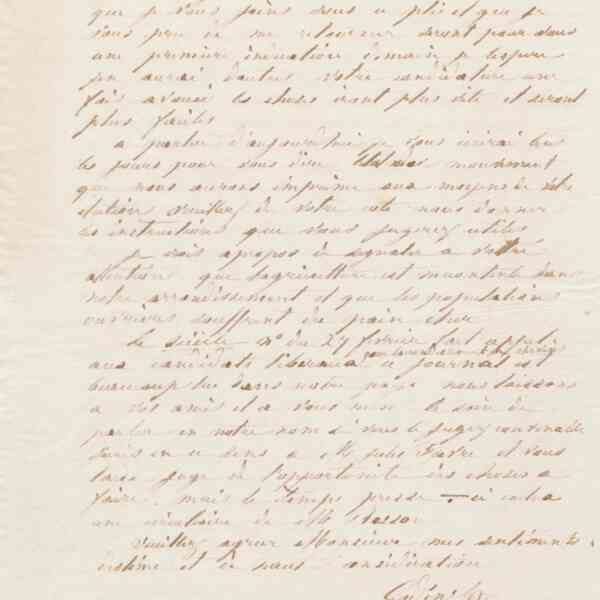 que je vous joins sous ce pli et que je
vous prie de me retourner seront pour vous
une première indication demain je l'espère
j'en aurai d'autres votre candidature une
fois avouée les choses iront plus vite et seront
plus faciles
a partir d'aujourd'hui je vous écrirai tous
les jours pour vous dire mouvement
que nous aurons imprimé aux moyens de
veuillez de votre coté nous donner
les instructions que vous jugerez utiles
je crois apropos de signaler a votre
attention que l'agriculture est mecontente dans
notre arrondissement et que les populations
ouvrières souffrent du pain cher
Le siècle n° du 27 fevrier fait appel
aux candidats liberaux ce journal est
beaucoup lu dans notre pays nous laissons
a vos amis et a vous meme le soin de
parler en notre nom si vous le jugez convenable
écris en ce sens a Mr Jules Favre et vous
laisse juge de l'opportunité des choses a
faire. mais le temps presse — ci
une circulaire de Mr
veuillez agreer Monsieur mes sentiments
d'estime et de haute consideration